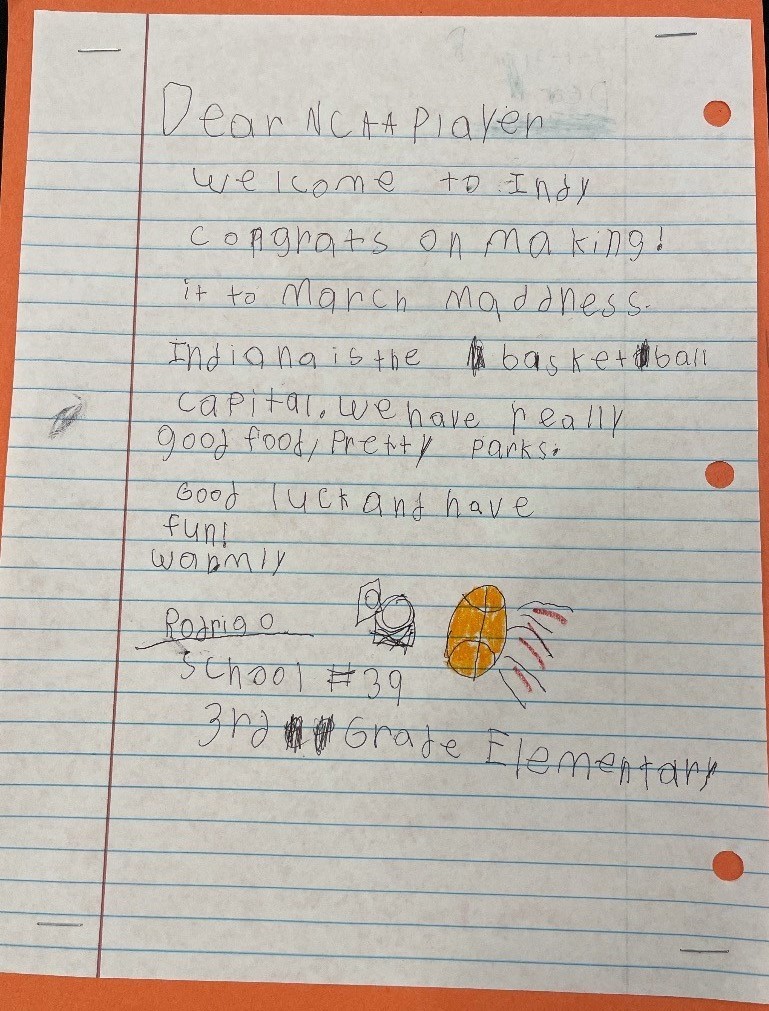 Dear NCAA Player
welcome to Indy
congrats on making!
it to march maddness.
Indiana is the basketball
capital. we have really
good food, pretty parks.
Good luck and have
fun!
warmly
Rodrigo
School #39
3rd Grade Elementary